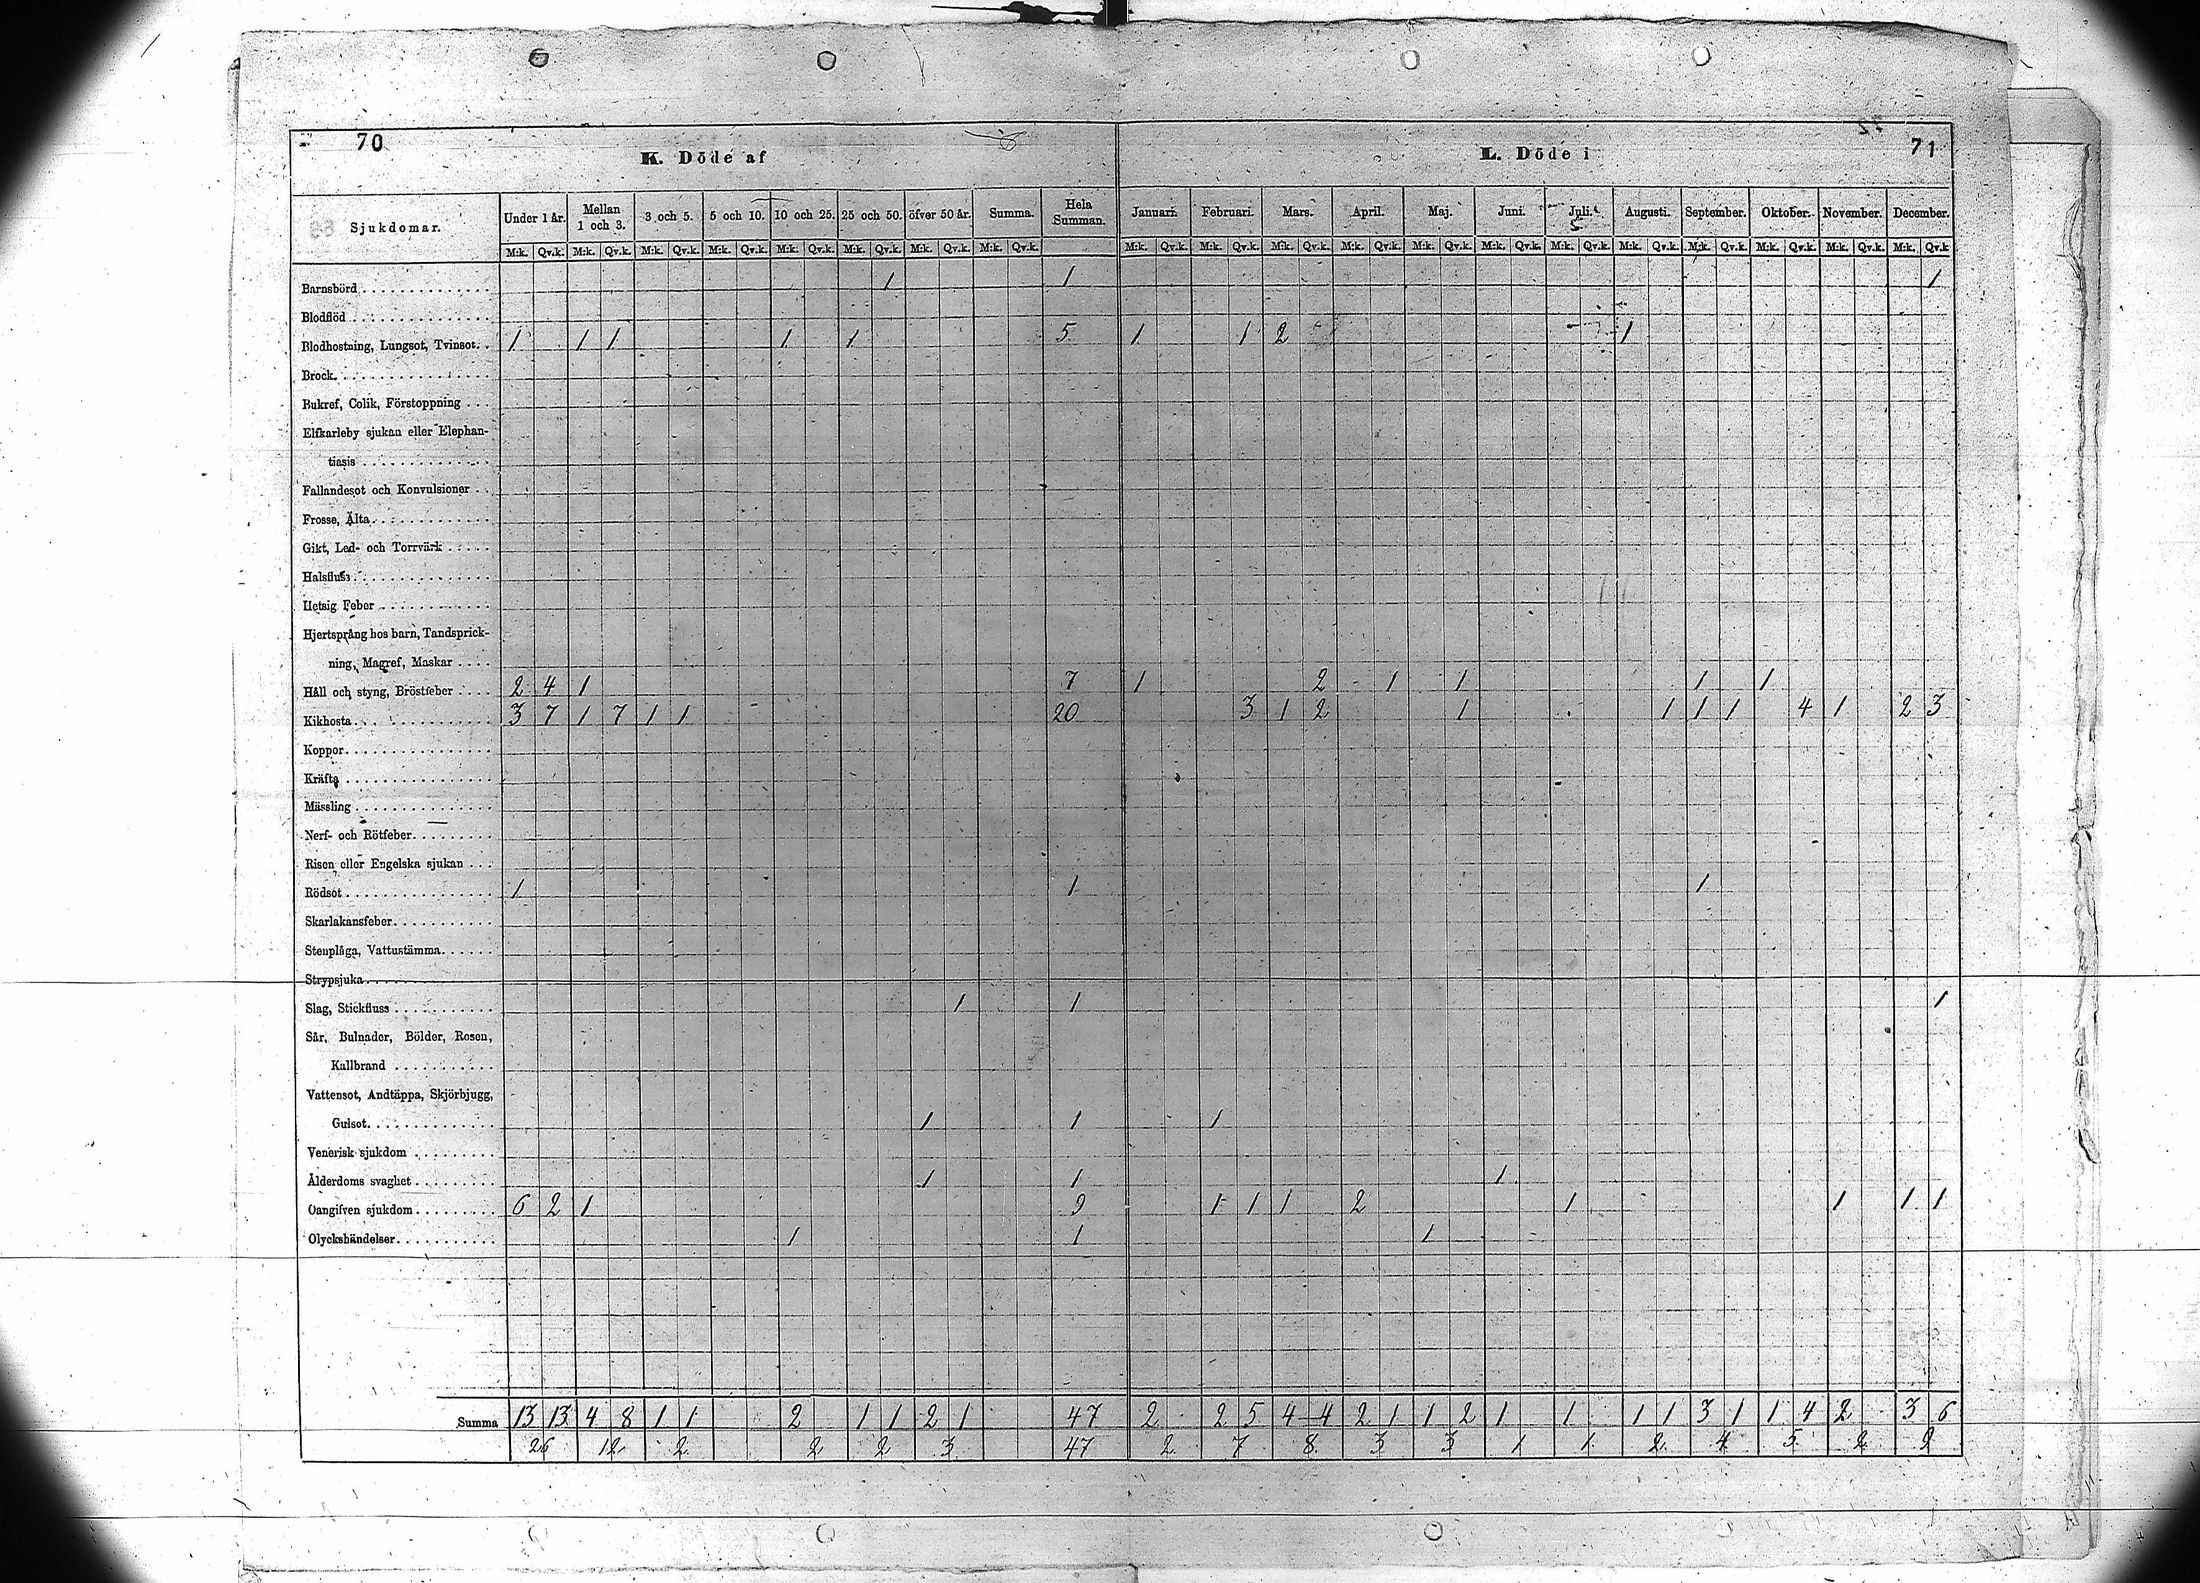 70
K. Döde af
L. Döde i
71
Sjukdomar. Under 1 år. Mellan 1 och 3. 3 och 5. 5 och 10. 10 och 25. 25 och 50. öfver 50 år. Summa. Hela Summan. Januari. Februari. Mars. April. Maj. Juni. Juli. Augusti. September. Oktober. November. December.
M:k. Qv.k. M:k. Qv.k. M:k. Qv.k. M:k. Qv.k. M:k. Qv.k. M:k. Qv.k. M:k. Qv.k. M:k. Qv.k. M:k. Qv.k. M:k. Qv.k. M:k. Qv.k. M:k. Qv.k. M:k. Qv.k. M:k. Qv.k. M:k. Qv.k. M:k. Qv.k. M:k. Qv.k. M:k. Qv.k. M:k. Qv.k. M:k. Qv.k
Barnsbörd 1 1 1
Blodflöd
Blodhostning, Lungsot, Tvinsot. 1 1 1 1 1 5 1 1 2 1
Brock.
Bukref, Colik, Förstoppning
Elfkarleby sjukan eller Elephan-
tiasis
Fallandesot och Konvulsioner
Frosse, Älta
Gikt, Led- och Torrvärk
Halsfluss
Hetsig Feber
Hjertsprång hos barn, Tandsprick-
ning, Magref, Maskar
Håll och styng, Bröstfeber 2 4 1 7 1 2 1 1 1 1
Kikhosta 3 7 1 7 1 1 20 3 1 2 1 1 1 1 4 1 2 3
Koppor
Kräfta
Mässling
Nerf- och Rötfeber
Risen eller Engelska sjukan
Rödsot 1 1 1
Skarlakansfeber
Stenplåga, Vattustämma
Strypsjuka
Slag, Stickfluss 1 1 1
Sår, Bulnader, Bölder, Rosen,
Kallbrand
Vattensot, Andtäppa, Skjörbjugg,
Gulsot 1 1 1
Venerisk sjukdom
Ålderdoms svaghet 1 1 1
Oangifven sjukdom 6 2 1 9 1 1 1 2 1 1 1 1
Olyckshändelser 1 1 1
Summa 13 13 4 8 1 1 2 1 1 2 1 47 2 2 5 4 4 2 1 1 2 1 1 1 1 3 1 1 4 2 3 6
26 12 2 2 2 3 47 2 7 8 3 3 1 1 2 4 5 2 9